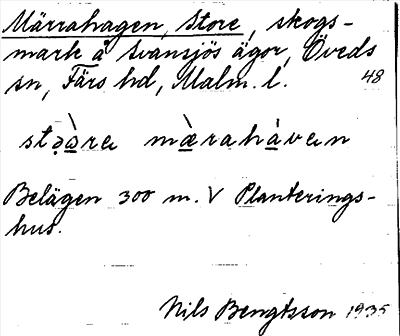 Märrahagen, Store, skogs-
mark å Svansjös ägor, Öveds
sn, Färs hd, Malm. l. 48
stə̀ɑ̀re mæ̀rahàven
Belägen 300 m. V Planterings-
hus.
Nils Bengtsson 1935